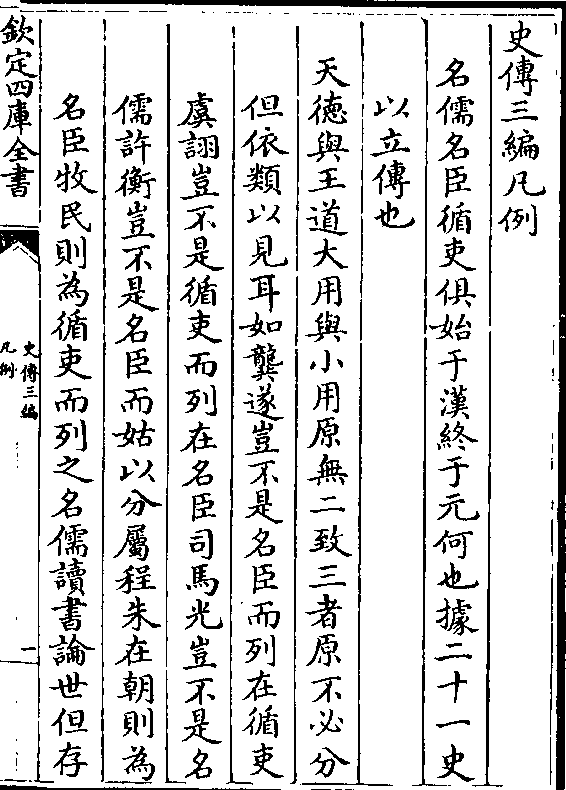 史傳三編凡例
名儒名臣循吏俱始于漢終于元何也據二十一史
以立傳也
天德與王道大用與小用原無二致三者原不必分
但依類以見耳如龔遂豈不是名臣而列在循吏
虞詡豈不是循吏而列在名臣司馬光豈不是名
儒許衡豈不是名臣而姑以分屬程朱在朝則為
名臣牧民則為循吏而列之名儒讀書論世但存
欽定四庫全書
史傳三編
凡例
一